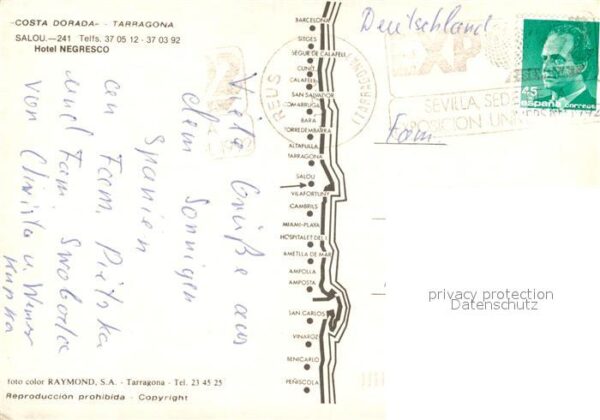 -COSTA DORADA- - TARRAGONA
SALOU.—241 Telfs. 37 05 12 - 37 03 92
Hotel NEGRESCO
Viele Grüße aus
dem sonnigen
Spanien
an Fam. Pietzka
und Fam. Swoboda
von Christa u. Werner
Kupka
foto color RAYMOND, S.A. - Tarragona - Tel. 23 45 25
Reproducción prohibida - Copyright
BARCELONA
SITGES
SEGUR DE CALAFELL
CUNIT
CALAFELL
SAN SALVADOR
COMARRUGA
BARA
TORREDEMBARRA
ALTAFULLA
TARRAGONA
SALOU
VILAFORTUNY
CAMBRILS
MIAMI-PLAYA
HOSPITALET DEL I.
AMETLLA DE MAR
AMPOLLA
AMPOSTA
SAN CARLOS
VINAROZ
BENICARLO
PEÑISCOLA
REUS
(TARRAGONA)
Deutschland
EXP
SEVILLA, SEDE
EXPOSICION UNIVERSAL 1992
45
españa
correos
Fam.
privacy protection
Datenschutz